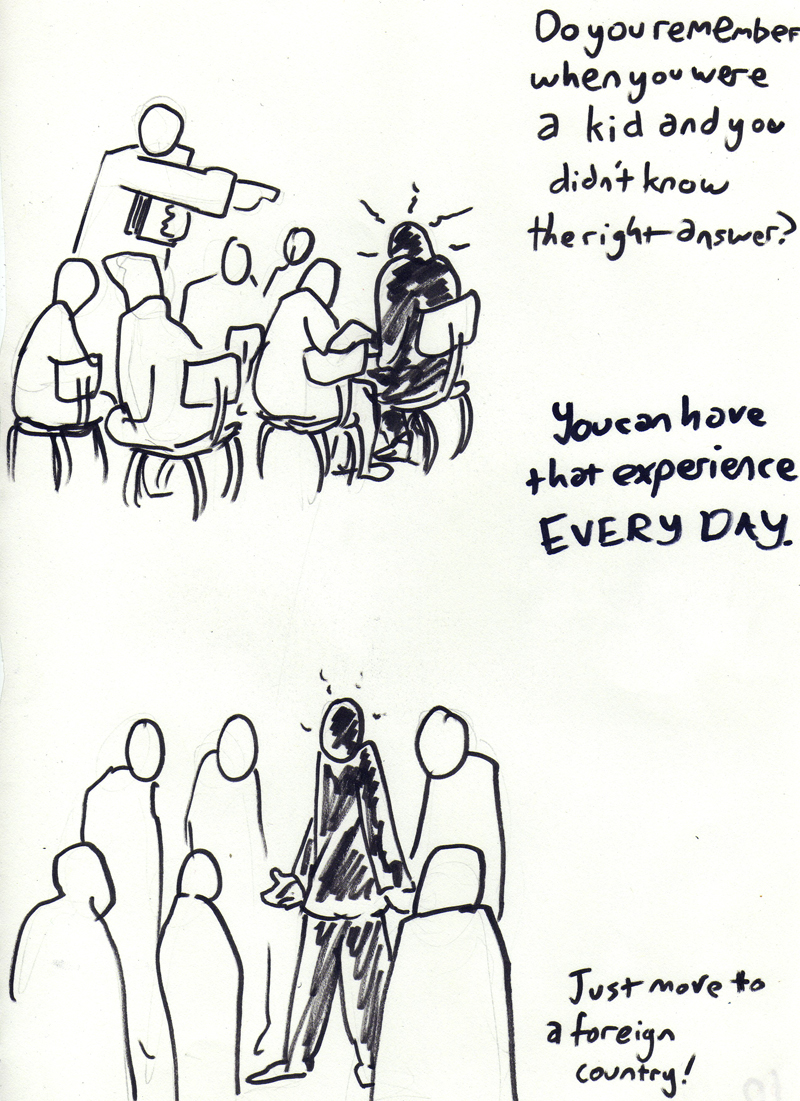 Do you remember
when you were
a kid and you
didn't know
the right answer?
You can have
that experience
EVERY DAY.
Just move to
a foreign
country!